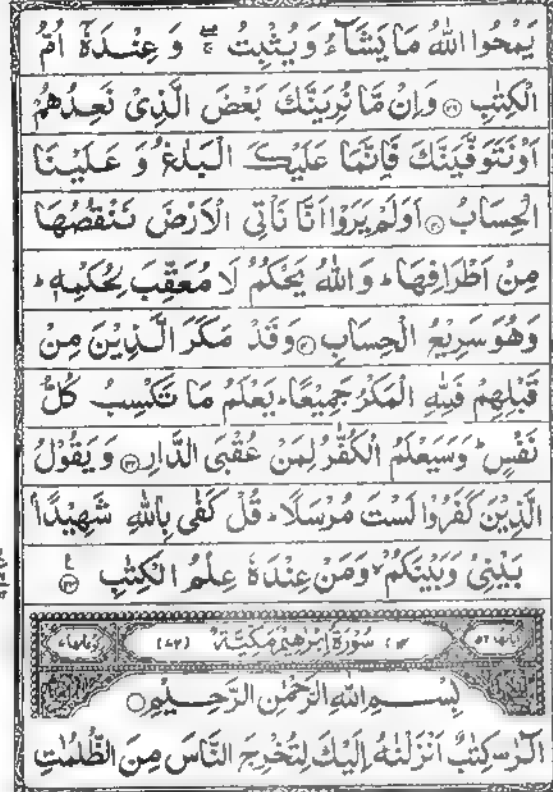 يَمْحُوا اللهُ مَا يَشَآءُ وَيُثْبِتُ ۖۚ وَ عِنْدَهٗٓ اُمُّ
الْكِتٰبِ ﴿٣٩﴾ وَاِنْ مَّا نُرِيَنَّكَ بَعْضَ الَّذِىْ نَعِدُهُمْ
اَوْ نَتَوَفَّيَنَّكَ فَاِنَّمَا عَلَيْكَ الْبَلٰغُ وَ عَلَيْنَا
الْحِسَابُ ﴿٤٠﴾ اَوَلَمْ يَرَوْا اَنَّا نَاْتِى الْاَرْضَ نَنْقُصُهَا
مِنْ اَطْرَافِهَا ؕ وَ اللهُ يَحْكُمُ لَا مُعَقِّبَ لِحُكْمِهٖ ؕ
وَهُوَ سَرِيْعُ الْحِسَابِ ﴿٤١﴾ وَقَدْ مَكَرَ الَّذِيْنَ مِنْ
قَبْلِهِمْ فَلِلّٰهِ الْمَكْرُ جَمِيْعًا ؕ يَعْلَمُ مَا تَكْسِبُ كُلُّ
نَفْسٍ ؕ وَسَيَعْلَمُ الْكُفّٰرُ لِمَنْ عُقْبَى الدَّارِ ﴿٤٢﴾ وَ يَقُوْلُ
الَّذِيْنَ كَفَرُوْا لَسْتَ مُرْسَلًا ؕ قُلْ كَفٰى بِاللهِ شَهِيْدًاۢ
بَيْنِىْ وَبَيْنَكُمْ ۙ وَمَنْ عِنْدَهٗ عِلْمُ الْكِتٰبِ ﴿٤٣﴾
اٰيَاتُهَا ٥٢ (١٤) سُوْرَةُ اِبْرٰهِيْمَ مَكِّيَّةٌ (٧٢) رُكُوْعَاتُهَا ٧
بِسْمِ اللهِ الرَّحْمٰنِ الرَّحِيْمِ
الٓرٰ كِتٰبٌ اَنْزَلْنٰهُ اِلَيْكَ لِتُخْرِجَ النَّاسَ مِنَ الظُّلُمٰتِ